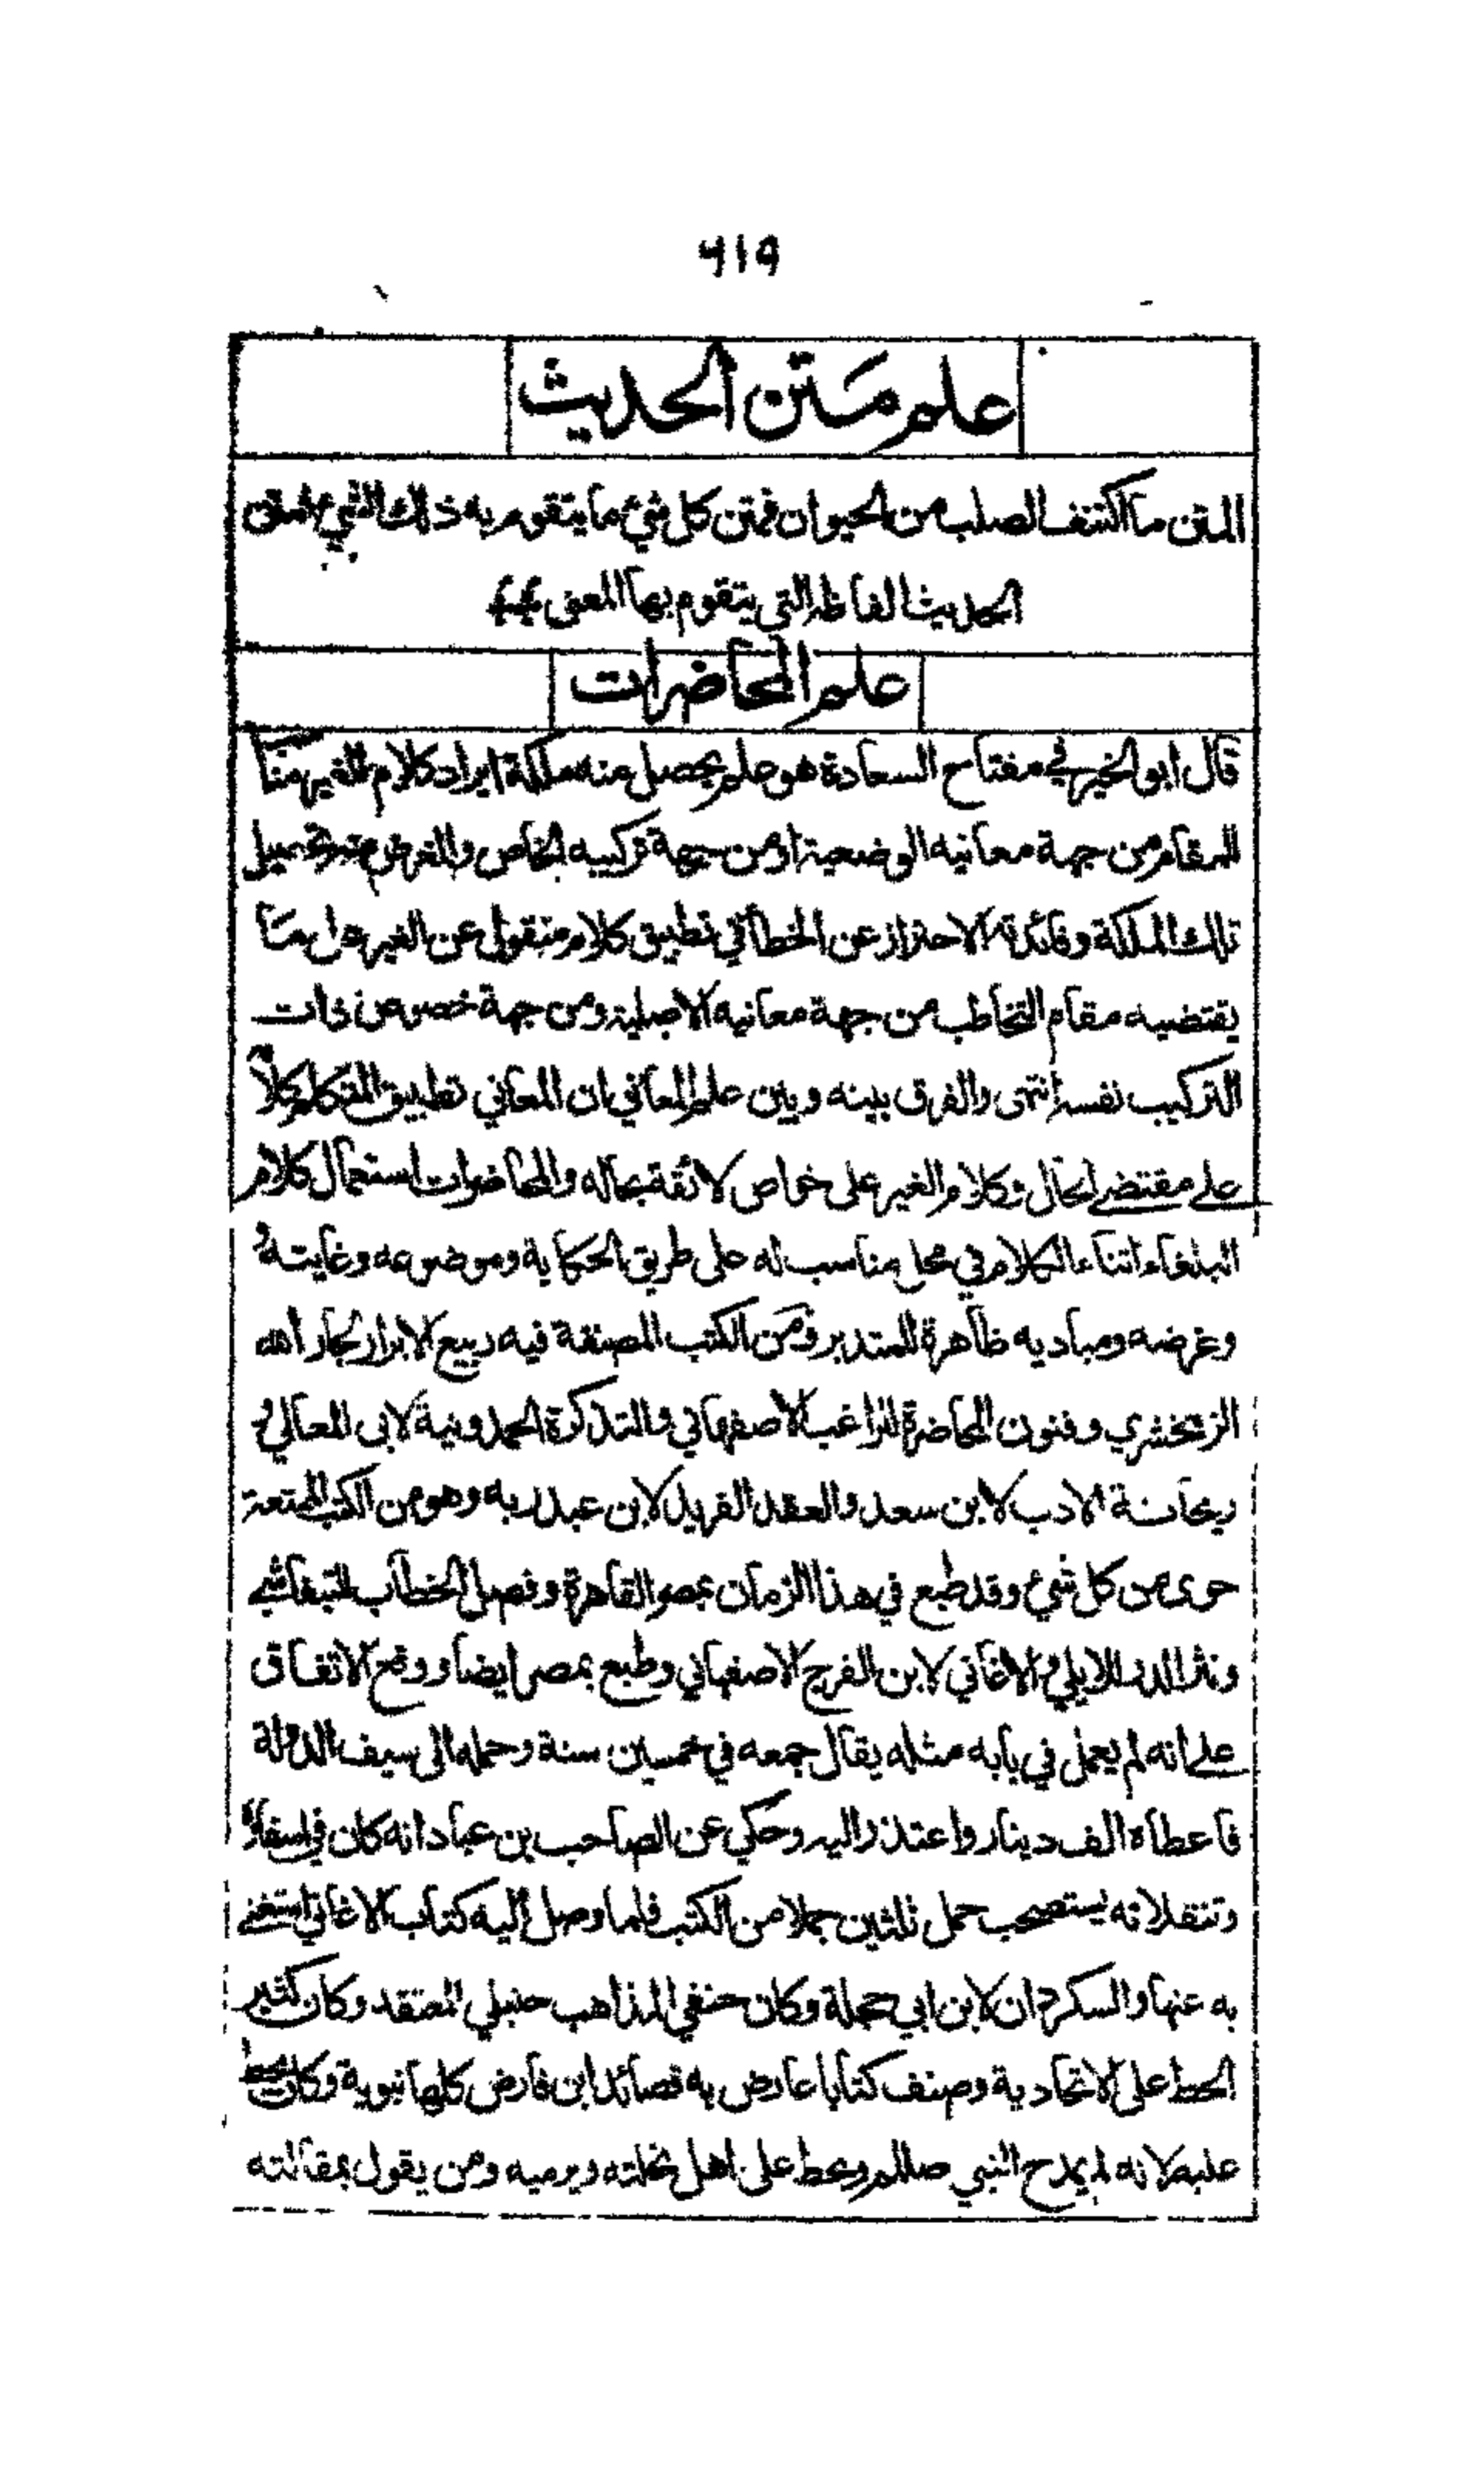 ٦١٩
علم متن الحديث
المتن ما اكتنف الصلب من الحيوان فمتن كل شيء ما يتقوم به ذلك الشيء فمتن
الحديث الفاظه التي يتقوم بها المعنى
علم المحاضرات
قال ابو الخير في مفتاح السعادة هو علم يحصل منه ملكة ايراد كلام للغير مناسباً
للمقام من جهة معانيه الوضعية او من جهة تركيبه الخاص والغرض منه تحصيل
تلك الملكة وفائدته الاحتراز عن الخطأ في تطبيق كلام منقول عن الغير على ما
يقتضيه مقام التخاطب من جهة معانيه الاصلية ومن جهة خصوص ذات
التركيب نفسه انتهى والفرق بينه وبين علم المعاني ان المعاني تطبيق المتكلم كلامه
على مقتضى الحال وكلام الغير على خواص لائقة بحاله والمحاضرات استعمال كلام
البلغاء اثناء الكلام في محل مناسب له على طريق الحكاية وموضوعه وغايته
وغرضه ومباديه ظاهرة للمتدبر ومن الكتب المصنفة فيه ربيع الابرار لجار الله
الزمخشري وفنون المحاضرة للراغب الاصفهاني والتذكرة الحمدونية لابى المعالي و
ريحانة الادب لابن سعد والعقد الفريد لابن عبد ربه وهو من الكتب الممتعة
حوى من كل شيء وقد طبع في هذا الزمان بمصر القاهرة وفصل الخطاب للتيفاشي
ونثر الدر للابي والاغاني لابن الفرج الاصفهاني وطبع بمصر ايضا ووقع الاتفاق
على انه لم يعمل في بابه مثله يقال جمعه في خمسين سنة وحمله الى سيف الدولة
فاعطاه الف دينار واعتذر اليه وحكي عن الصاحب بن عباد انه كان في اسفاره
وتنقلاته يستصحب حمل ثلثين جملا من الكتب فلما وصل اليه كتاب الاغاني استغنى
به عنها والسكردان لابن ابي حجلة وكان حنفي المذاهب حنبلي المعتقد وكان كثير
الحط على الاتحادية وصنف كتابا عارض به قصائد ابن فارض كلها نبوية وكان يحط
عليه لانه لم يمدح النبي صللم ويحط على اهل نحلته ويرميه ومن يقول بمقالته